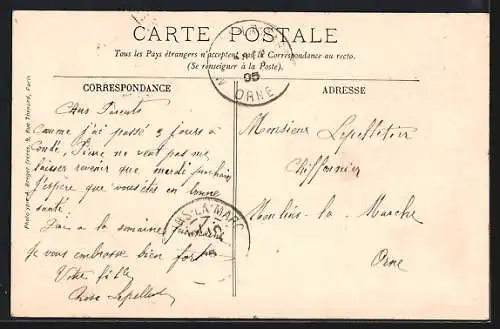 CARTE POSTALE
Tous les Pays étrangers n'acceptent pas la Correspondance au recto.
(Se renseigner à la Poste).
CORRESPONDANCE
ADRESSE
Chers Parents
Comme j'ai passé 3 jours à
Condé, Pierre ne veut pas me
laisser revenir que mardi prochain
J'espère que vous êtes en bonne
santé.
J'ai à la semaine
Je vous embrasse bien fort
Votre fille
Rose Lepelletier
Monsieur Lepelletier
Chiffonnier
Moulins-la-Marche
Orne
05
ORNE
NS-LA-MARC
Berger frères, 9, Rue Thénard, Paris